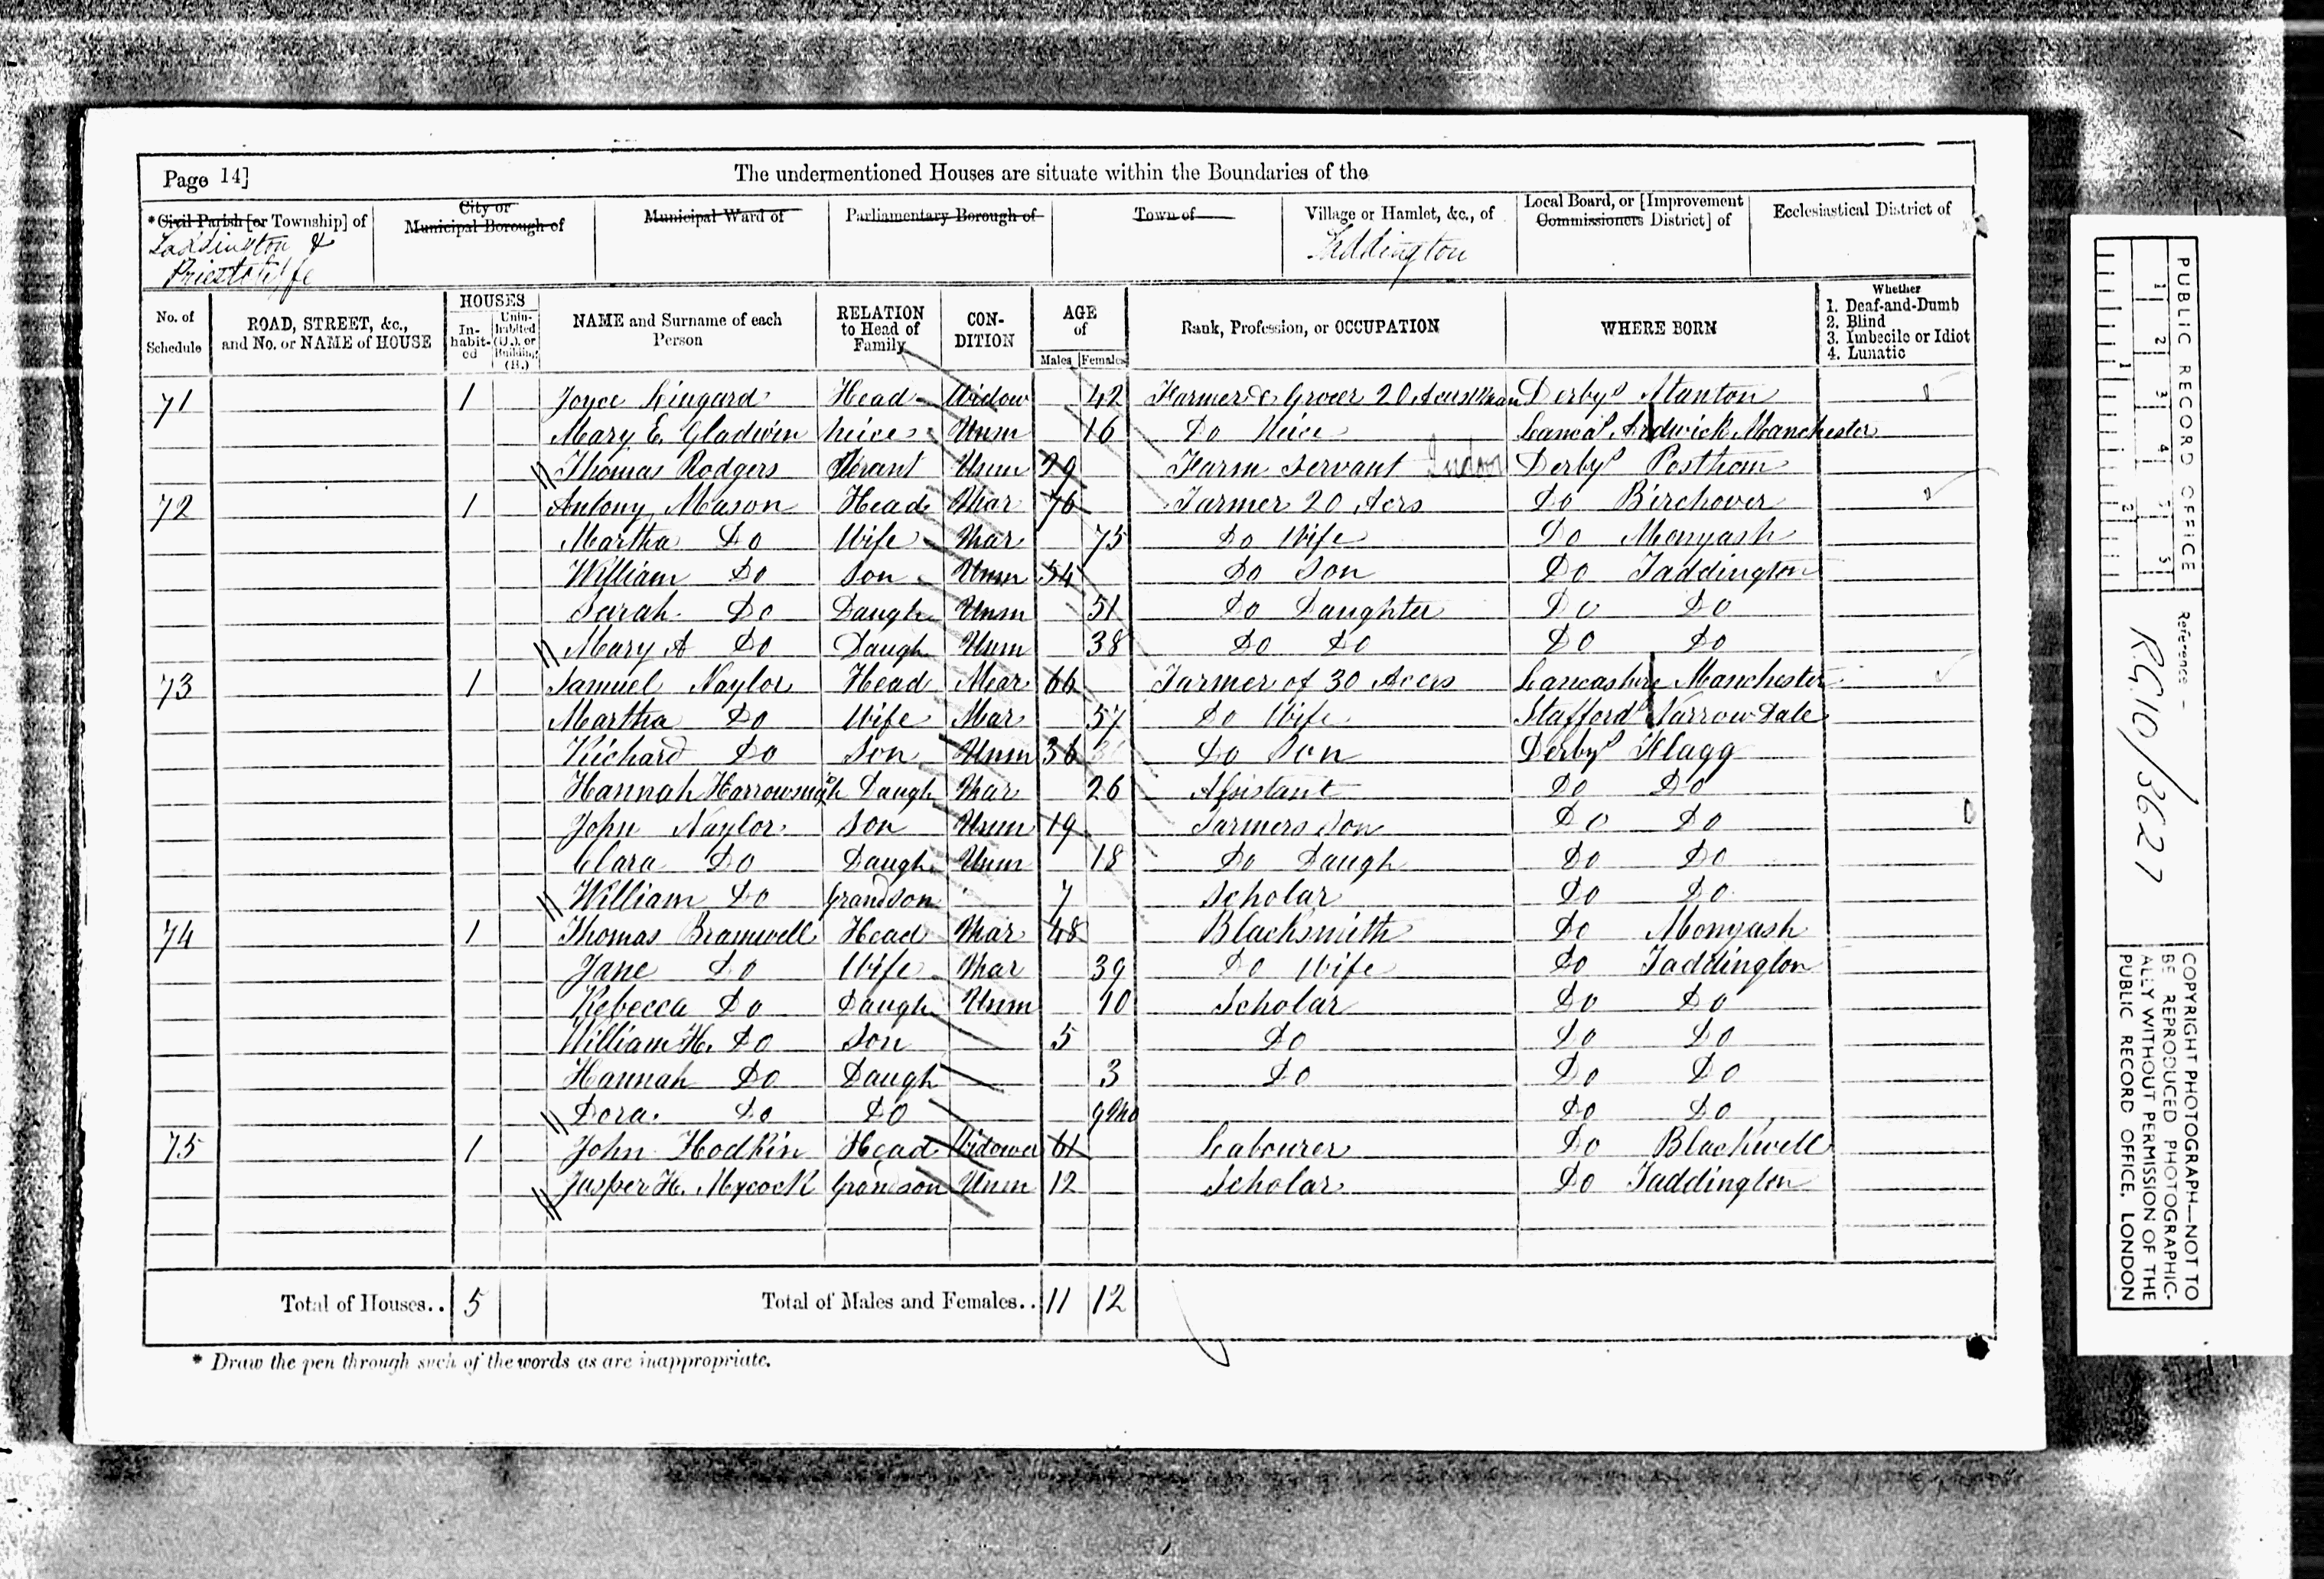 Page 14]
The undermentioned Houses are situate within the Boundaries of the
*Civil Parish [or Township] of
City or Municipal Borough of
Municipal Ward of
Parliamentary Borough of
Town of
Village or Hamlet, &c., of
Local Board, or [Improvement Commissioners District] of
Ecclesiastical District of
Taddington &
Priestcliffe
Taddington
No. of Schedule
ROAD, STREET, &c., and No. or NAME of HOUSE
HOUSES
In-habit-ed
Unin-habited (U.), or Building (B.)
NAME and Surname of each Person
RELATION to Head of Family
CON-DITION
AGE of
Males Females
Rank, Profession, or OCCUPATION
WHERE BORN
Whether
1. Deaf-and-Dumb
2. Blind
3. Imbecile or Idiot
4. Lunatic
71 1 Joyce Lingard Head Widow 42 Farmer & Grocer 20 Acres Derbys Stanton
Mary E. Gladwin neice Unm 16 Do Neice Lancas Ardwick Manchester
Thomas Rodgers Servant Unm 29 Farm Servant Indoor Derbys
72 1 Antony Mason Head Mar 76 Farmer 20 Acrs Do Birchover
Martha Do Wife Mar 75 Do Wife Do Monyash
William Do Son Unm 54 Do Son Do Taddington
Sarah Do Daugh Unm 51 Do Daughter Do Do
Mary A Do Daugh Unm 38 Do Do Do Do
73 1 Samuel Naylor Head Mar 66 Farmer of 30 Acers Lancashire Manchester
Martha Do Wife Mar 57 Do Wife Staffords Narrow Dale
Richard Do Son Unm 36 Do Son Derbys Flagg
Hannah Harrowsmith Daugh Mar 26 Assistant Do Do
John Naylor Son Unm 19 Farmers Son Do Do
Clara Do Daugh Unm 18 Do Daugh Do Do
William Do Grandson 7 Scholar Do Do
74 1 Thomas Bramwell Head Mar 48 Blacksmith Do Monyash
Jane Do Wife Mar 39 Do Wife Do Taddington
Rebecca Do Daugh Unm 10 Scholar Do Do
William H. Do Son 5 Do Do Do
Hannah Do Daugh 3 Do Do Do
Dora Do Do 9 Mo Do Do
75 1 John Hodkin Head Widower 61 Labourer Do Blackwell
Jasper H. Mycock Grandson Unm 12 Scholar Do Taddington
Total of Houses.. 5
Total of Males and Females.. 11 12
* Draw the pen through such of the words as are inappropriate.
PUBLIC RECORD OFFICE
1 2 3 4 5 6
1 2
Reference -
R.G.10/3627
COPYRIGHT PHOTOGRAPH—NOT TO
BE REPRODUCED PHOTOGRAPHIC-
ALLY WITHOUT PERMISSION OF THE
PUBLIC RECORD OFFICE, LONDON